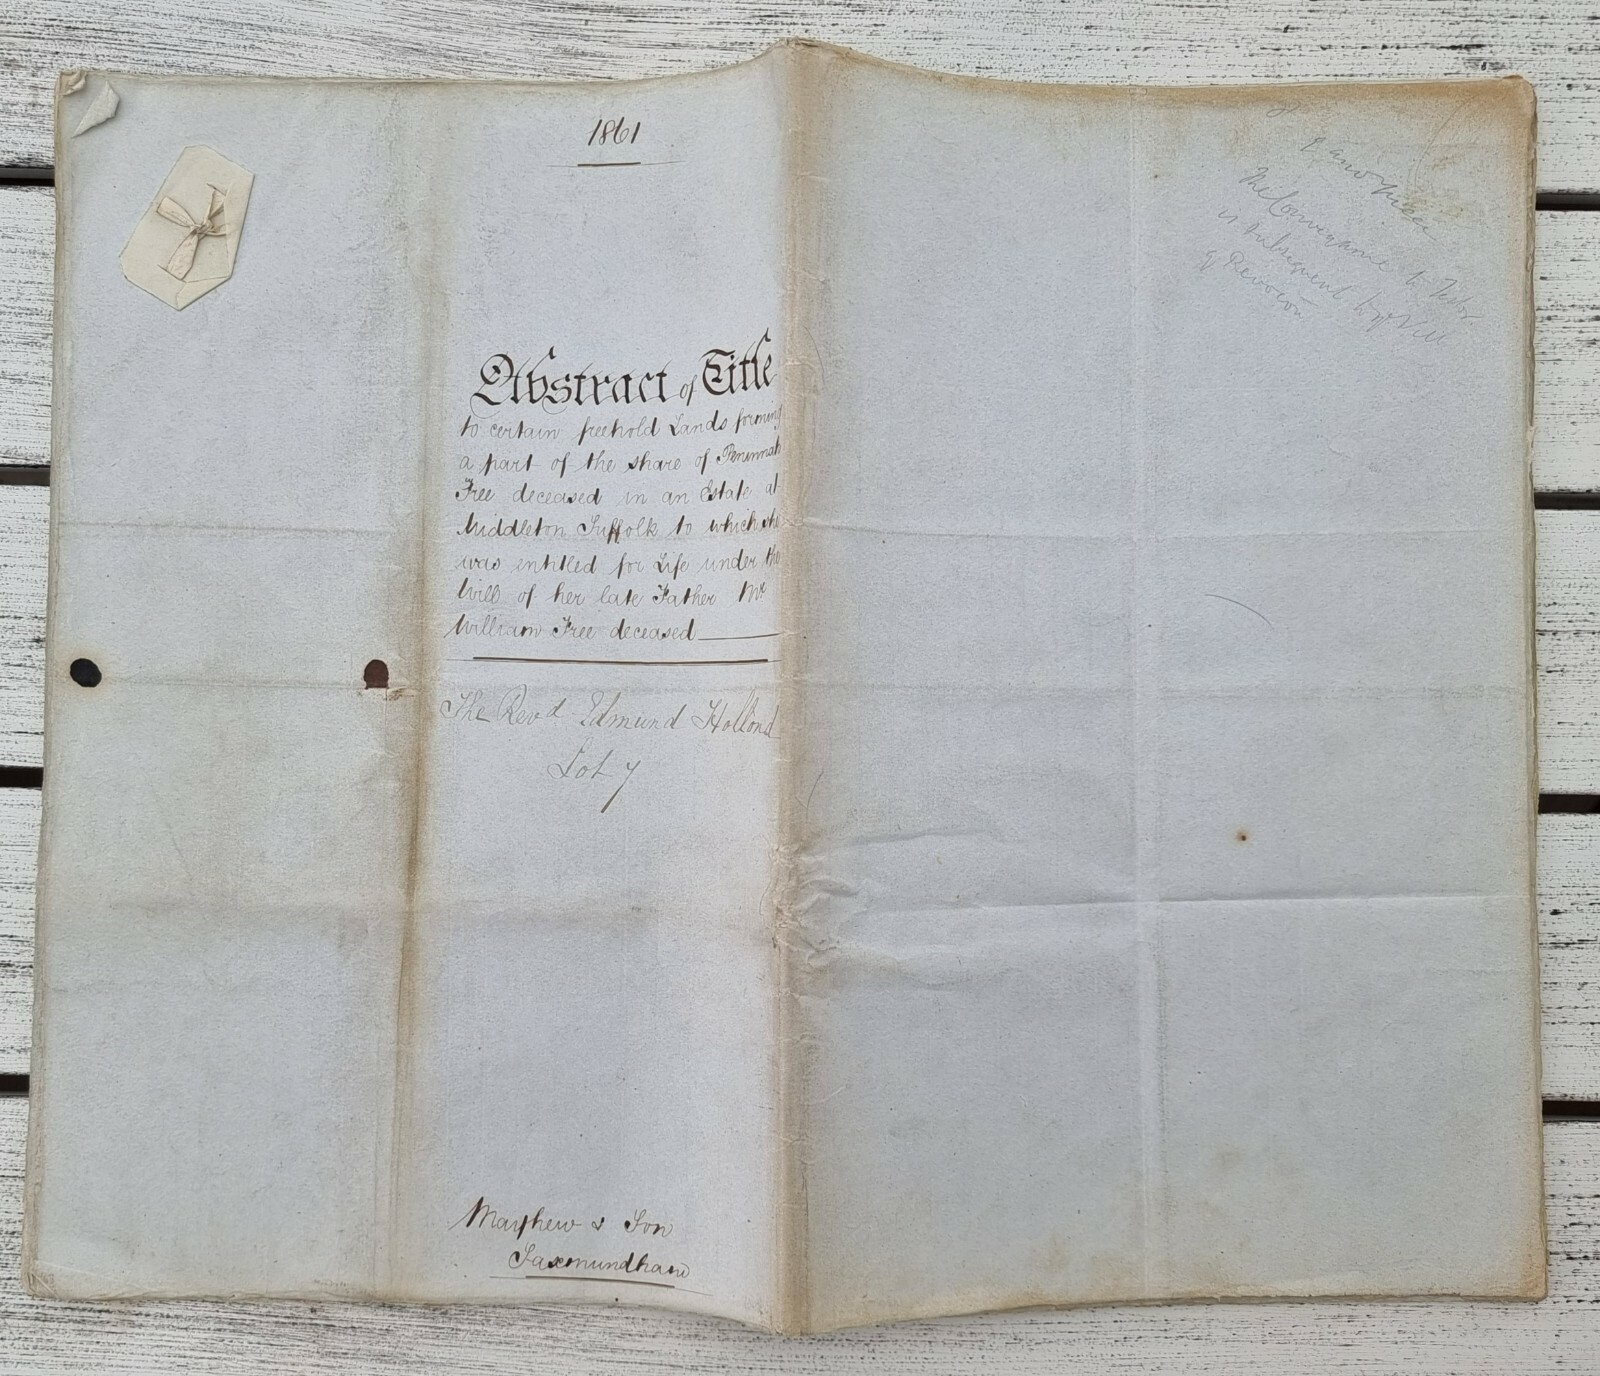 1861
Abstract of Title
to certain freehold Lands forming
a part of the share of Peninnah
Free deceased in an Estate at
Middleton Suffolk to which she
was entitled for Life under the
Will of her late Father Mr
William Free deceased
The Revd Edmund Hollond
Lot 7
Mayhew & Son
Saxmundham
The Conveyance to
is subsequent to
of